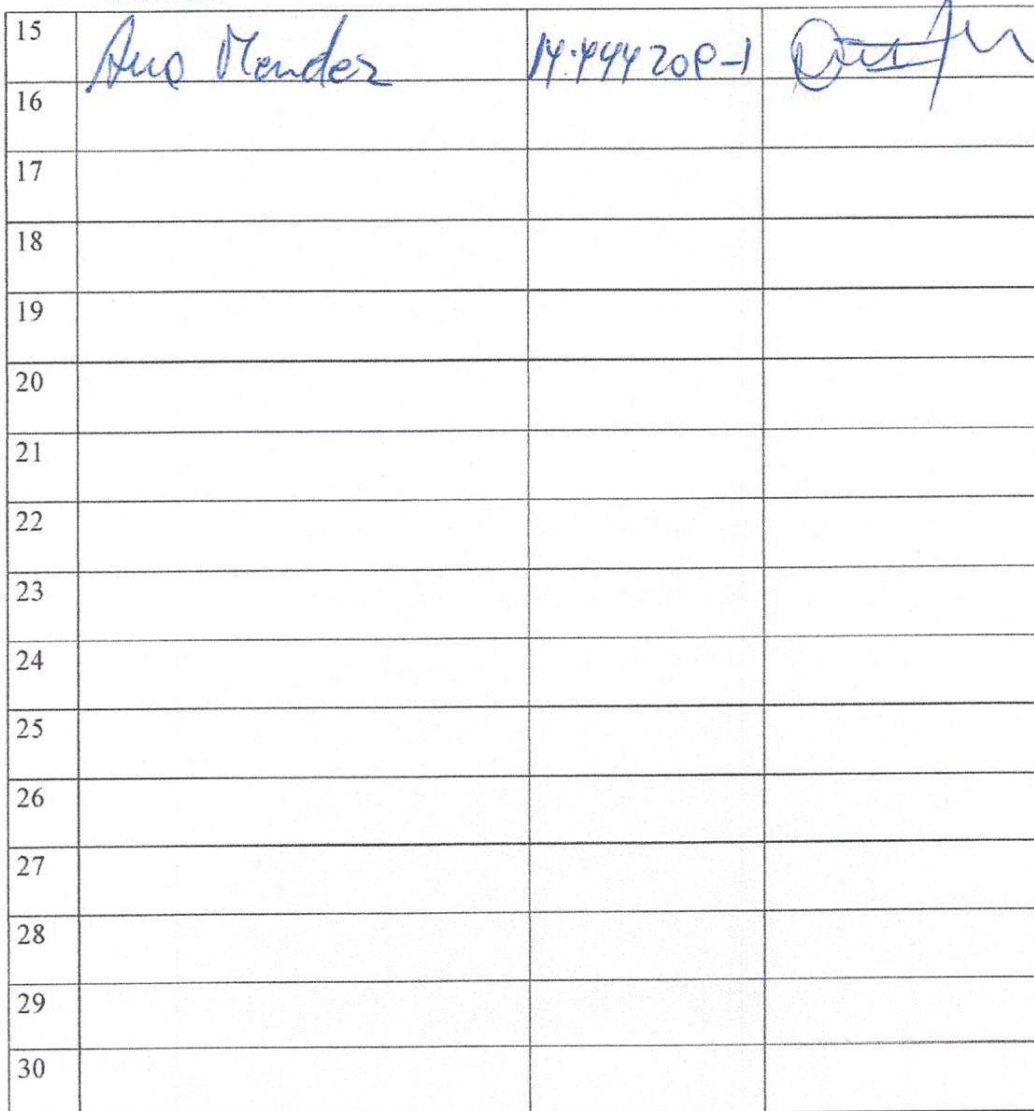 15 Ana Mendez 14.444208-1
16
17
18
19
20
21
22
23
24
25
26
27
28
29
30